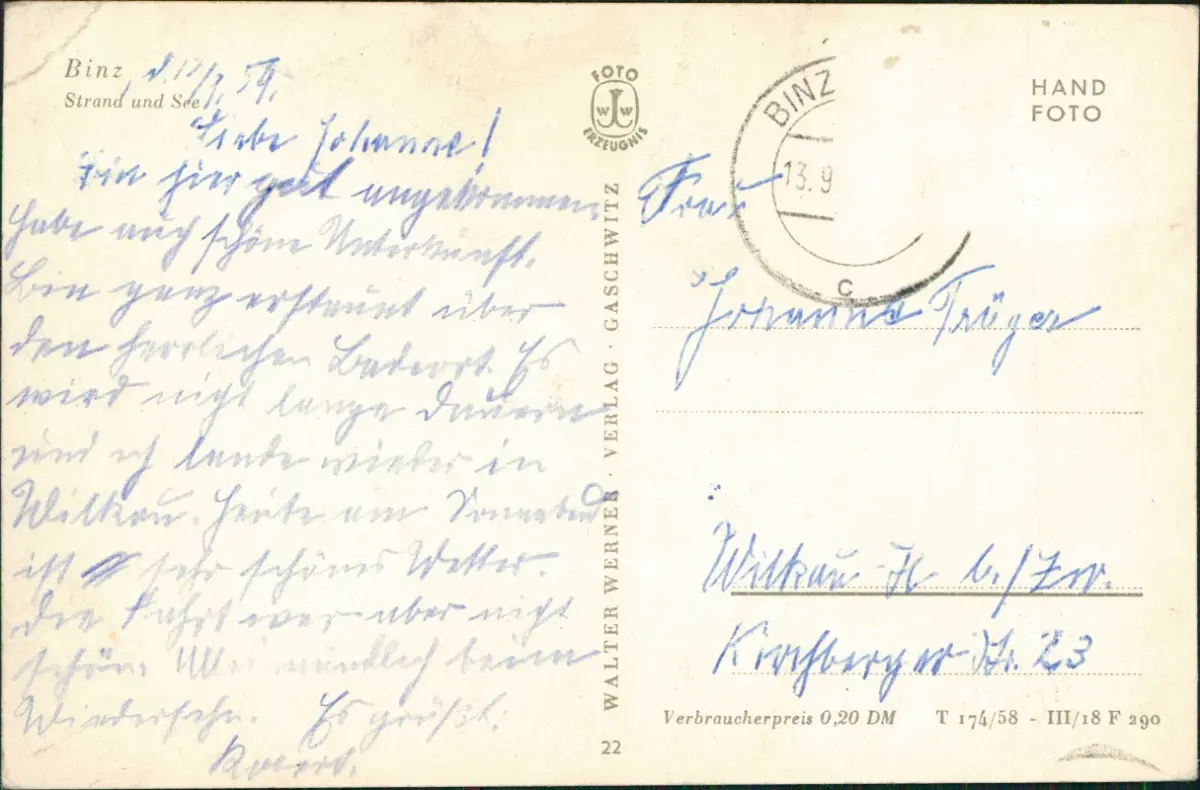 Binz d. 12/9. 59.
Strand und See
Liebe Johanne!
Bin hier gut angekommen.
Habe auch schöne Unterkunft.
Bin ganz erstaunt über
den herrlichen Badeort. Es
wird nicht lange dauern
und ich lande wieder in
Wilkau. Heute am Sonnabend
ist sehr schönes Wetter.
Die Fahrt war aber nicht
schön. Alles mündlich beim
Wiedersehn. Es grüßt:
FOTO
WW
ERZEUGNIS
WALTER WERNER · VERLAG · GASCHWITZ
22
BINZ
13.9
c
HAND
FOTO
Frau
Johanne Träger
Wilkau-H b./Zw.
Kirchberger Str. 23
Verbraucherpreis 0,20 DM T 174/58 - III/18 F 290